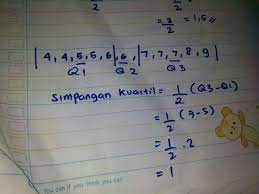 2
= 3/2 = 1,5 //
| 4, 4, 5, 5, 6 | 6, | 7, 7, 7, 8, 9 |
Q1 Q2 Q3
Simpangan kuartil = 1/2 (Q3 - Q1)
= 1/2 (7 - 5)
= 1/2 . 2
= 1
you can if you think you can